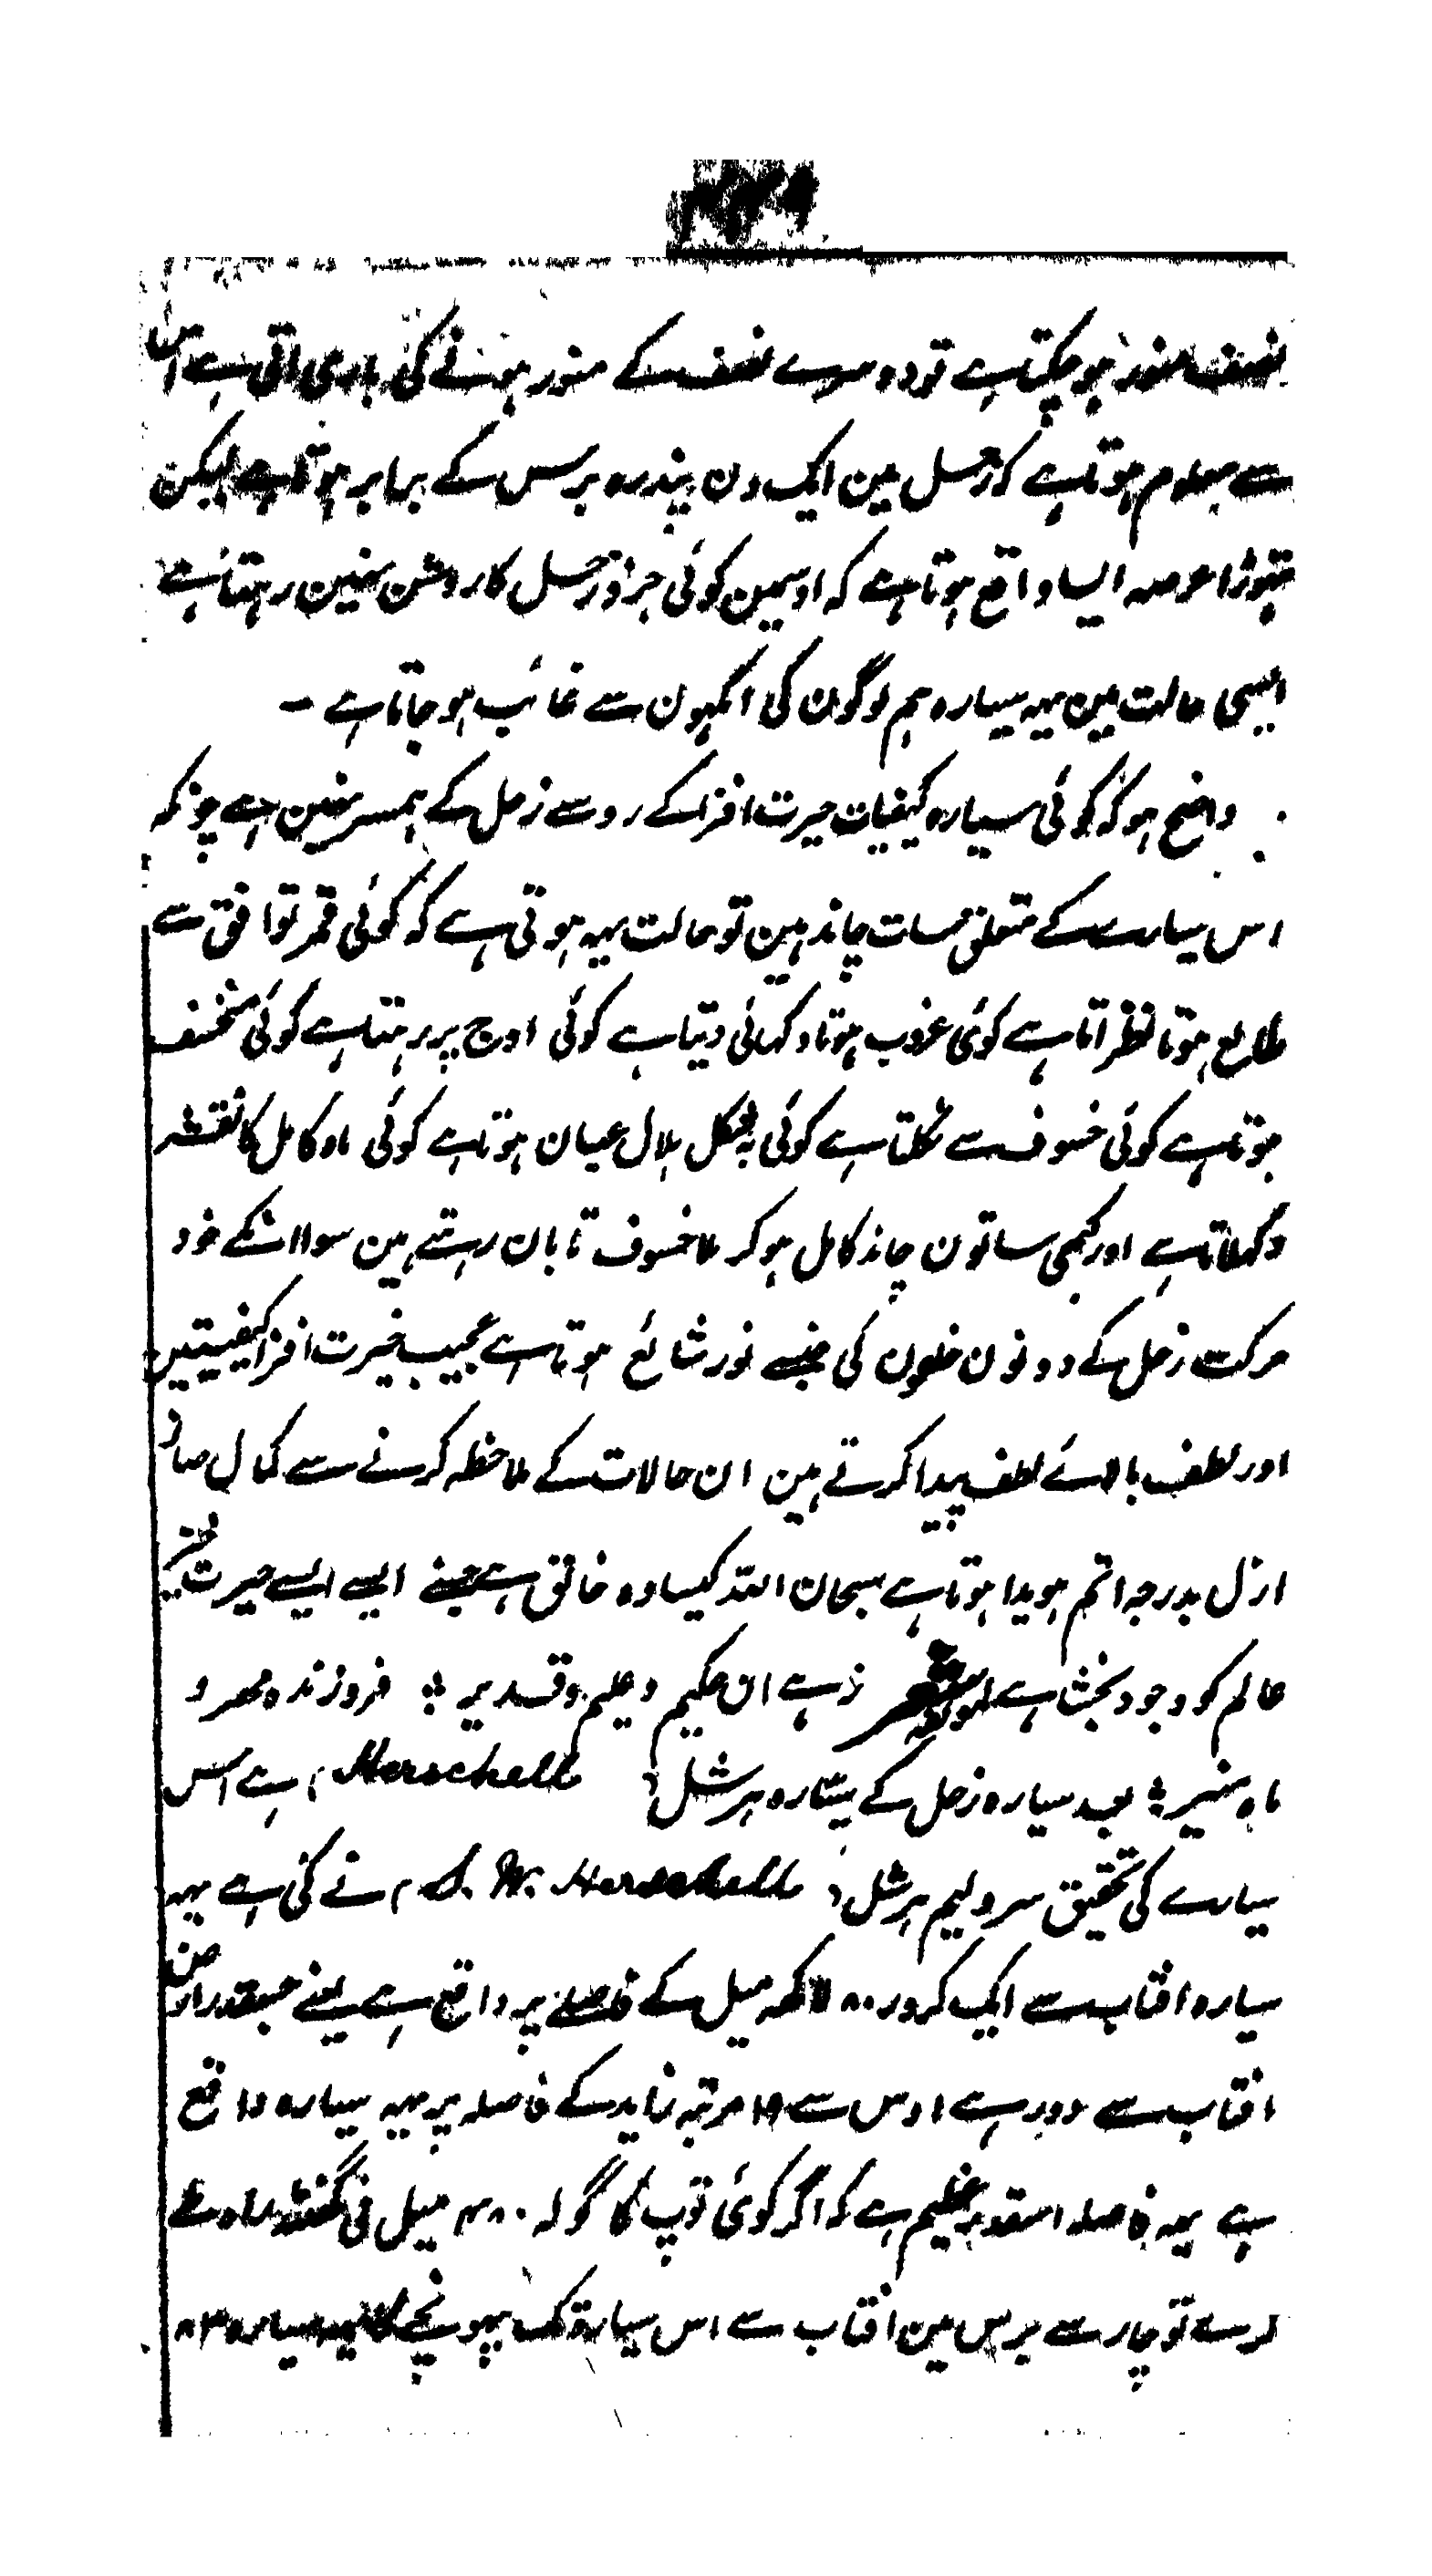 نصف منور ہو چکتا ہے تو دوسرے نصف کے منور ہونے کی باری اتی ہے اس
سے معلوم ہوتا ہے کہ زحل مین ایک دن پندرہ برس کے برابر ہوتا ہے لیکن
تہوڑا عرصہ ایسا واقع ہوتا ہے کہ اوسمین کوئی جزو زحل کا روشن نہین رہتا ہے
ایسی حالت مین یہہ سیارہ ہم لوگون کی انکہون سے غائب ہو جاتا ہے -
واضح ہو کہ کوئی سیارہ کیفیات حیرت افزا کے رو سے زحل کے ہمسر نہین ہے چونکہ
اس سیارے کے متعلق سات چاند ہین تو حالت یہہ ہوتی ہے کہ کوئی قمر تو افق سے
طالع ہوتا نظر اتا ہے کوئی غروب ہوتا دکہائی دیتا ہے کوئی اوج پر رہتا ہے کوئی منخسف
ہوتا ہے کوئی خسوف سے نکلتا ہے کوئی بشکل ہلال عیان ہوتا ہے کوئی ماہ کامل کا نقشہ
دکہلاتا ہے اور کبہی ساتون چاند کامل ہو کر بلا خسوف تابان رہتے ہین سوا انکے خود
حرکت زحل کے دونون حلقون کی جنسے نور شائع ہوتا ہے عجیب حیرت افزا کیفیتین
اور لطف بالائے لطف پیدا کرتے ہین ان حالات کے ملاحظہ کرنے سے کمال صانع
ازل بدرجہ اتم ہویدا ہوتا ہے سبحان اللہ کیسا وہ خالق ہے جسنے ایسے ایسے حیرت خیز
عالم کو وجود بخشا ہے زہے ان حکیم و علیم و قدیر ؞ فروزندہ مہر و
ماہ منیر ؞ بعد سیارہ زحل کے سیارہ ہرشل ( Herschell ) ہے اس
سیارے کی تحقیق سر ولیم ہرشل ( S. W. Herschell ) نے کی ہے یہہ
سیارہ افتاب سے ایک کرور ۸۰ لاکہہ میل کے فاصلے پر واقع ہے یعنے جسقدر ارض
افتاب سے دور ہے اوس سے ۱۹ مرتبہ زاید کے فاصلہ پر یہہ سیارہ واقع
ہے یہہ فاصلہ اسقدر عظیم ہے کہ اگر کوئی توپ کا گولہ ۴۸۰ میل فی گھنٹہ راہ طے
کرے تو چار سے برس مین افتاب سے اس سیارہ تک پہونچے گا یہہ سیارہ ۸۴